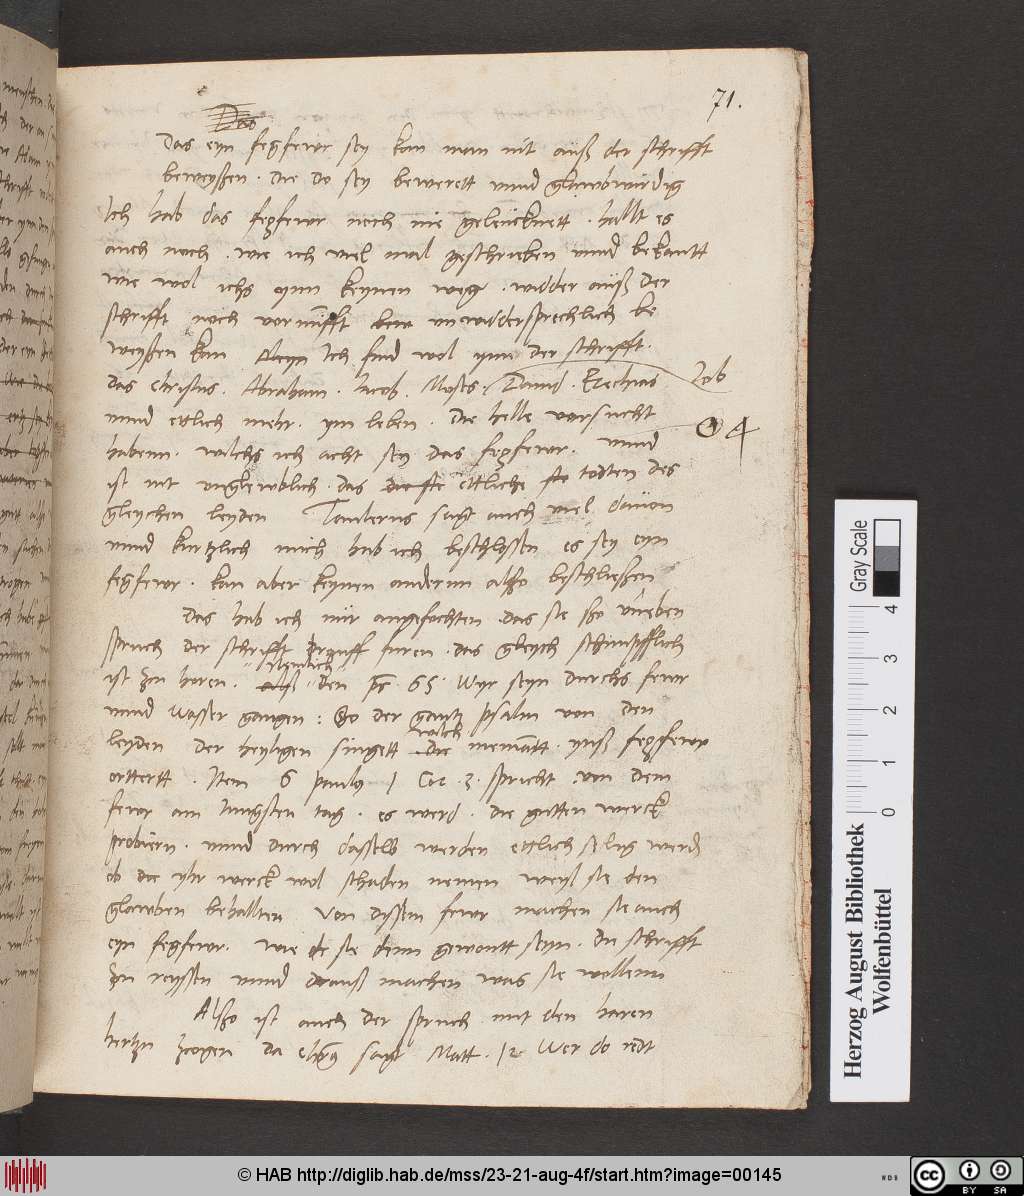 71.
Das
Das eyn fegfewr sey kan man nit auß der schrifft
beweyßen. die do sey bewerett unnd glawbwirdig
Ich hab das fegfewr noch nie geleucknett. hallt es
auch noch. wie ich viel mal geschrieben unnd bekantt
wie wol ichs ynn keynen weg. widder auß der
schrifft noch vornunfft unwiddersprechlich be
weyßen kan Aleyn Ich find wol ynn der schrifft.
das Christus. Abraham. Jacob. Moses. David. Ezechias Job
unnd ettlich mehr. ym leben. die helle vorsucht
habenn. wilchs ich acht sey das fegfewr. unnd
ist nit unglewblich. das ettliche todten des
gleychen leyden Taulerus sagt auch viel davon
unnd kurtzlich mich hab ich beschlossen es sey eyn
fegfewr. kan aber keynen andernn alßo beschließen
Das hab ich nur angefochten das sie ßo uneben
spruch der schrifft drauff furen. das gleych schimpfflich
ist zu horen. Nemlich den ps. 65. Wyr seyn durchs fewr
unnd wasser gangen: So der gantz psalm von den
leyden der heyligen singett wilch niemantt. ynß fegfewr
orttertt. Item S paulus 1 Cor. 3. spricht. von dem
fewr am Jungsten tag. es werd. die gutten werck
probiern. unnd durch dasselb werden ettlich selig werden
ob die yhr werck wol schaden nemen weyl sie den
glawben behallten. Von dissem fewr machen sie auch
eyn fegfewr. wie sie denn gewontt seyn. die schrifft
zu reyssen unnd drauß machen was sie wollenn
Alßo ist auch der spruch mit den haren
hertzu zcogen da Christus sagt Matt. 12 Wer do redt
0 1 2 3 4
Gray Scale
Herzog August Bibliothek
Wolfenbüttel
© HAB http://diglib.hab.de/mss/23-21-aug-4f/start.htm?image=00145
WDB
cc BY SA